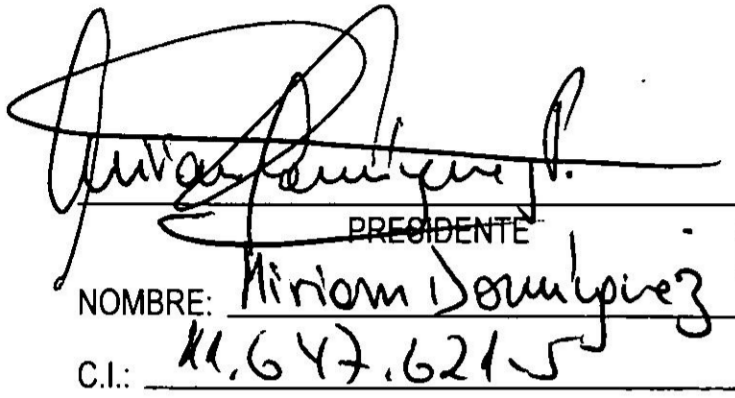 Miriam Dominguez P.
PRESIDENTE
NOMBRE: Miriam Dominguez
C.I.: 11.647.621-5